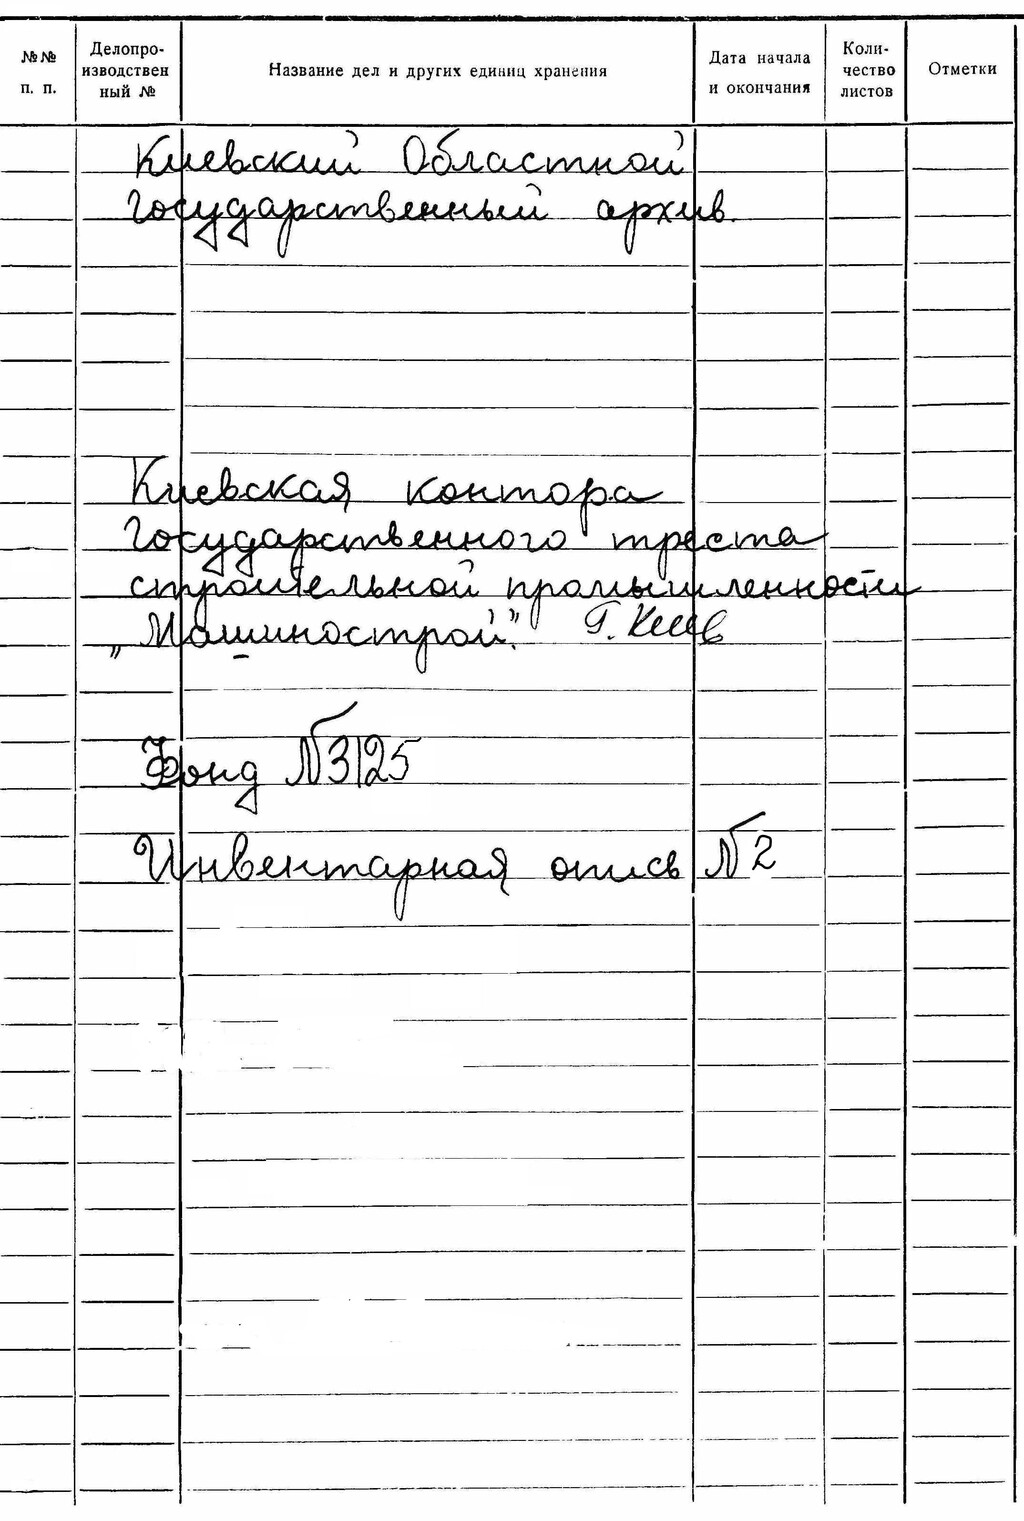 №№ п. п.
Делопро-
изводствен
ный №
Название дел и других единиц хранения
Дата начала
и окончания
Коли-
чество
листов
Отметки
Киевский Областной
Государственный архив.
Киевская контора
Государственного треста
строительной промышленности
„Машинострой". г. Киев
Фонд №3125
Инвентарная опись №2